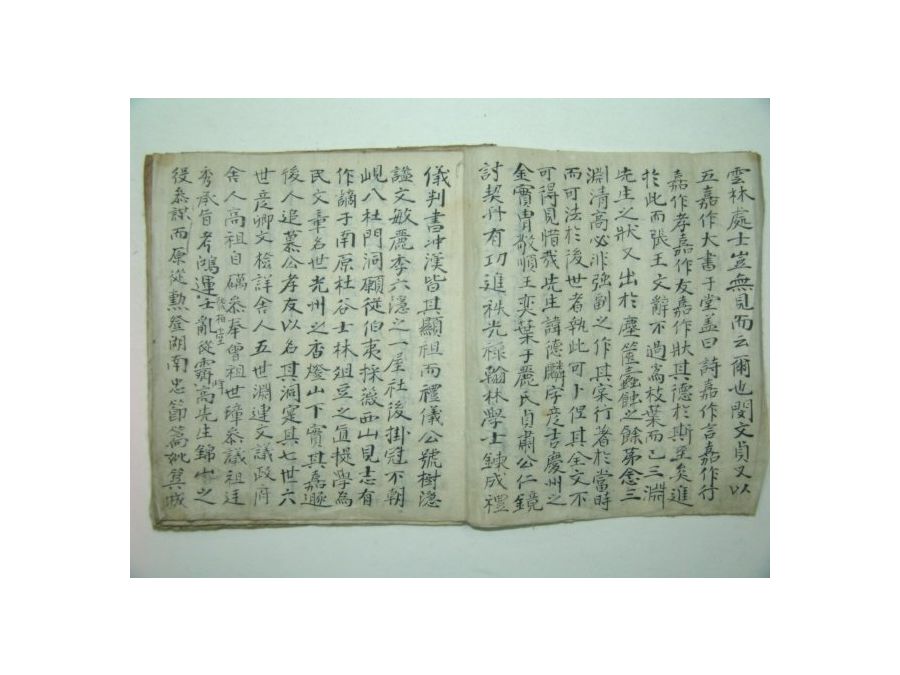 雲林處士豈無見而云爾也閔文貞又以
五嘉作大書于堂盖曰詩嘉作言嘉作行
嘉作孝嘉作友嘉作狀其德於斯至矣進
於此而張王文辭不過嵩枝葉而已三淵
先生之狀又出於塵篋蠹蝕之餘第念三
淵清高必非強副之作其宲行著於當時
而可法於後世者執此可卜俚其全文不
可得見惜哉先生諱德麟字彦吉慶州之
金實胄敬順王奕葉于麗氏貞肅公仁鏡
討契丹有功進秩光祿翰林學士鍊成禮
儀判書冲漢皆其顯祖而禮儀公號樹隱
謚文敏麗季六隱之一屋社後掛冠不朝
峴入杜門洞願從伯夷採薇西山見志有
作謫于南原杜谷士林俎豆之直提學為
民文章名世光州之杏燈山下實其嘉遯
後人追慕公孝友以名其洞寔其七世六
世彦卿文檢詳舍人五世淵連文議政府
舍人高祖自礪叅奉曾祖世璋叅議祖廷
秀承旨考鴻運壬亂從霽高先生錦山之
役叅謀而原從勳登湖南忠節篙妣箕城